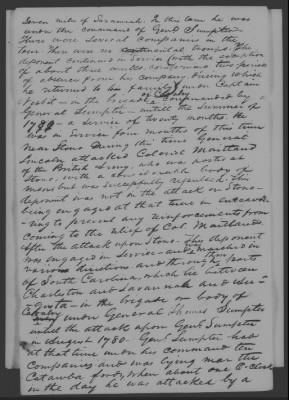 Seven miles of Savannah. In this tour he was
under the command of Genl Sumpter
there were several Companies in the
tour. There were no continental troops. The
deponent continued in Service (with the exception
of about three weeks containing two periods
of absence from his company, during which
he returned to his family) under Captain
in the brigade commanded by
General Sumpter until the Summer of
1780 - a service of twenty months. He
was in Service four months of this time
near Stono During this time General
Lincoln attacked Colonel Maitland
of the British Army, who was posted at
Stono - with a considerable body of
men but was successfully repulsed. This
deponent was not in the attack on Stono -
being engaged at that time in endeavor
-ing to prevent any reinforcements from
coming to the relief of Col. Maitland.
After the attack upon Stono, this deponent
was engaged in Service and marched in
various directions and through parts
of South Carolina, which lie between
Charleston and Savannah and
in the brigade or body of
Cavalry under General Thomas Sumpter
until the attack upon Genl Sumpter
in August 1780 - Genl Sumpter had
at that time under his command ten
Companies and was lying near the
Catawba fords, when about one O-clock
in the day he was attacked by a